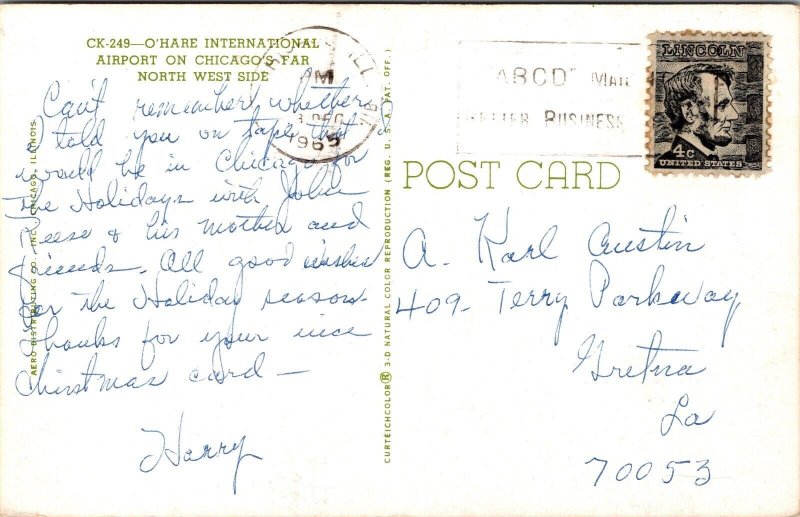 CK-249—O'HARE INTERNATIONAL
AIRPORT ON CHICAGO'S FAR
NORTH WEST SIDE
Can't remember whether
I told you on tape that I
would be in Chicago for
the Holidays with John
Reese & his mother and
friends. All good wishes
for the Holiday season.
Thanks for your nice
Christmas card—
Harry
AERO DISTRIBUTING CO., INC., CHICAGO, ILLINOIS
CURTEICHCOLOR® 3-D NATURAL COLOR REPRODUCTION (REG. U.S.A. PAT. OFF.)
ILL
AM
DEC
1965
ABCD MAIL
BUSINESS
LINCOLN
4c
UNITED STATES
POST CARD
A. Karl Austin
409 - Terry Parkway
Gretna
La
70053